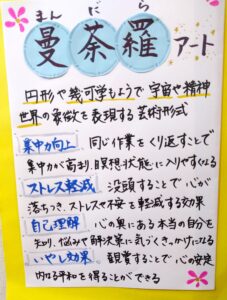 まんだら
曼荼羅アート
円形や幾何学もようで宇宙や精神
世界の象徴を表現する芸術形式
集中力向上 同じ作業をくり返すことで
集中力が高まり、瞑想状態に入りやすくなる
ストレス軽減 没頭することで心が
落ちつき、ストレスや不安を軽減する効果
自己理解 心の奥にある本当の自分を
知り、悩みや解決策に気づくきっかけになる
いやし効果 観賞することで心の安定
内なる平和を得ることができる